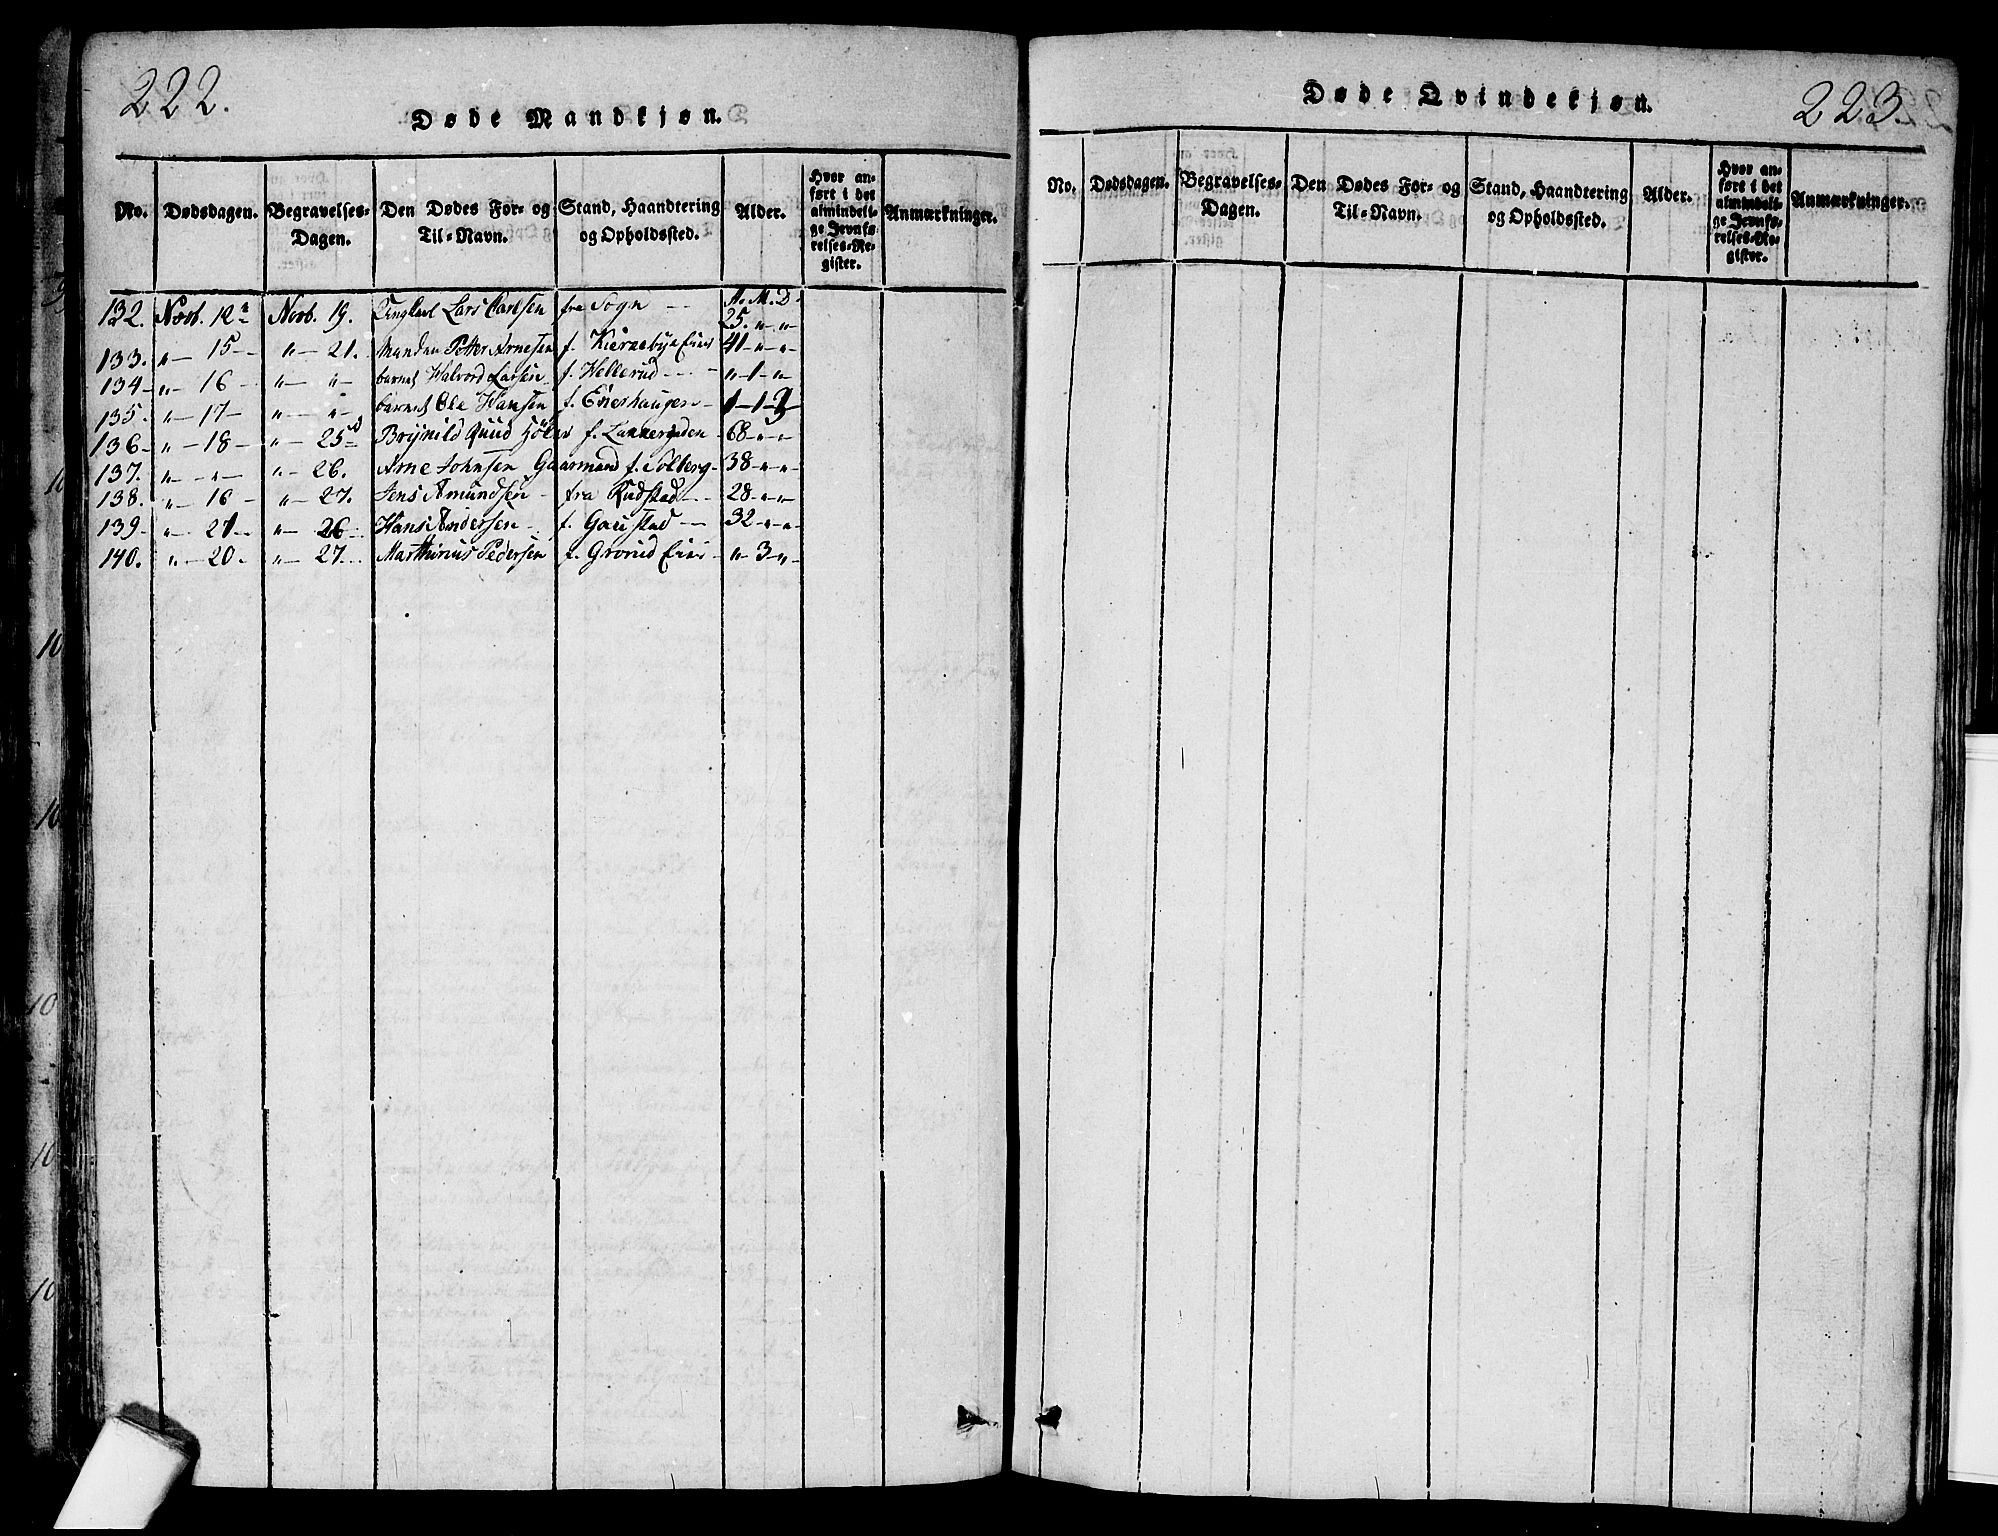 222.
Døde Mandkjøn.
No. Dødsdagen. Begravelses-Dagen. Den Dødes For- og Til-Navn. Stand, Haandtering og Opholdssted. Alder. Hvor anført i det almindelige Jevnførelses-Register. Anmærkninger.
A. M. D.
132. Novb. 12 Novb. 19. Lars fra Sogn 25. " "
133. " 15 " 21. Manden Petter Arnesen f. 41 " "
134 " 16 " " barnet Halvord Larsen f. Hellerud " 1 "
135. " 17 " " barnet Ole Hansen f. 1 - 1 -
136 " 18 " 25 Brynild f. 68 " "
137. " " " 26. Arne Johnsen Gaarmand f. Solberg 38 " "
138. " 16 " 27. Jens Amundsen fra Rudstad 28 " "
139 " 21 " 26 Hans Andersen f. Gaustad 32 " "
140. " 20 " 27 Marthinus Pedersen f. Grorud Eier " 3 "
223.
Døde Qvindekjøn.
No. Dødsdagen. Begravelses-Dagen. Den Dødes For- og Til-Navn. Stand, Haandtering og Opholdssted. Alder. Hvor anført i det almindelige Jevnførelses-Register. Anmærkninger.